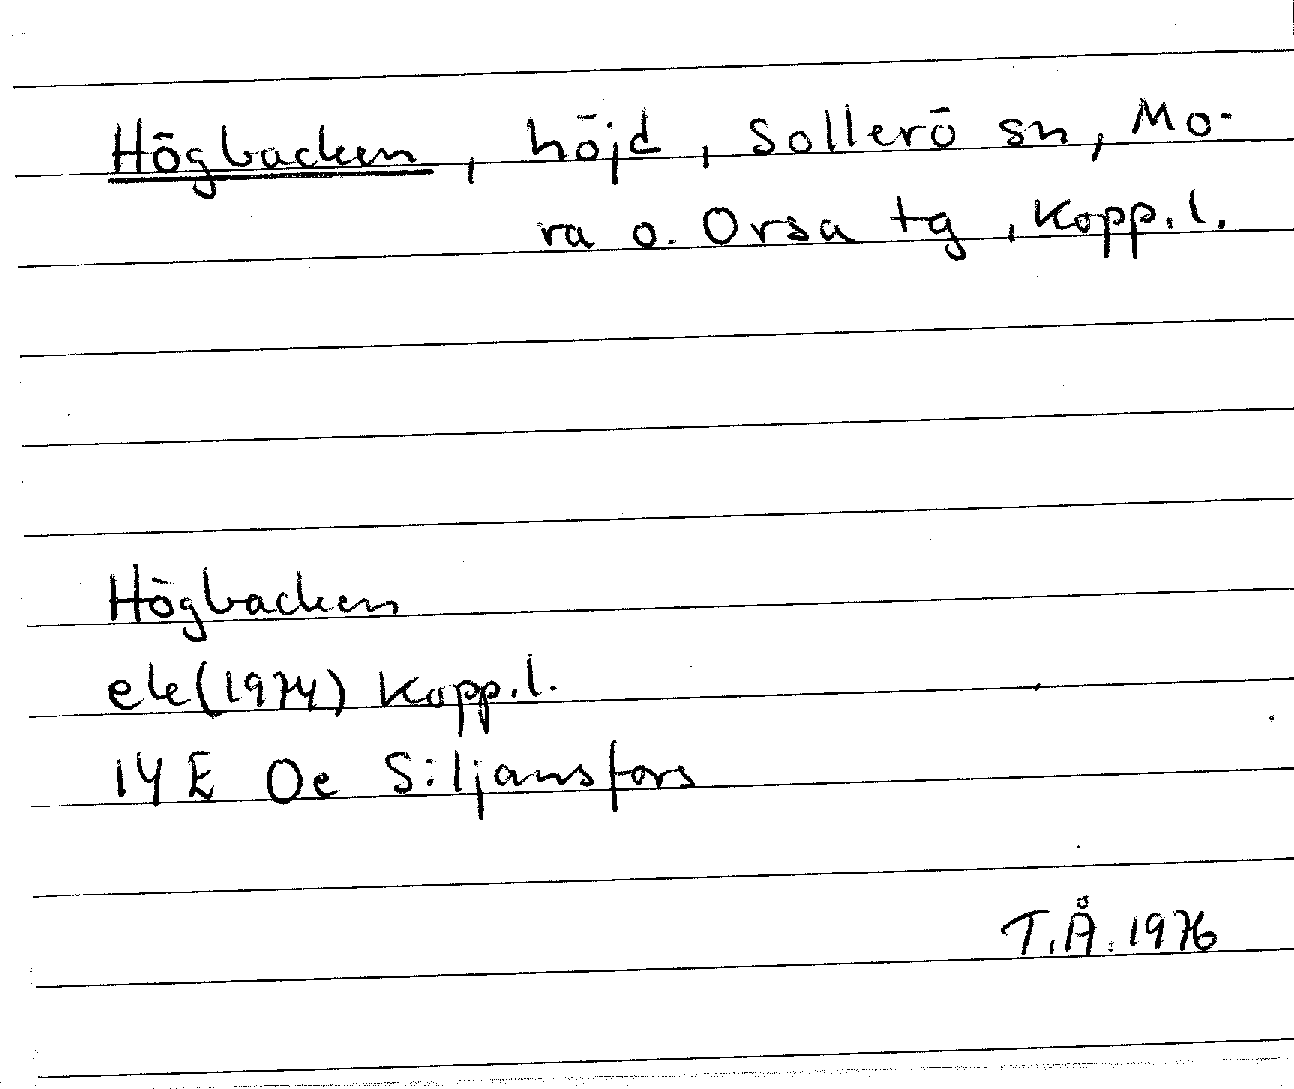 Högbacken, höjd, Sollerö sn, Mo-
ra o. Orsa tg, Kopp. l.
Högbacken
ek (1974) Kopp. l.
14 E Oe Siljansfors
T.Å. 1976